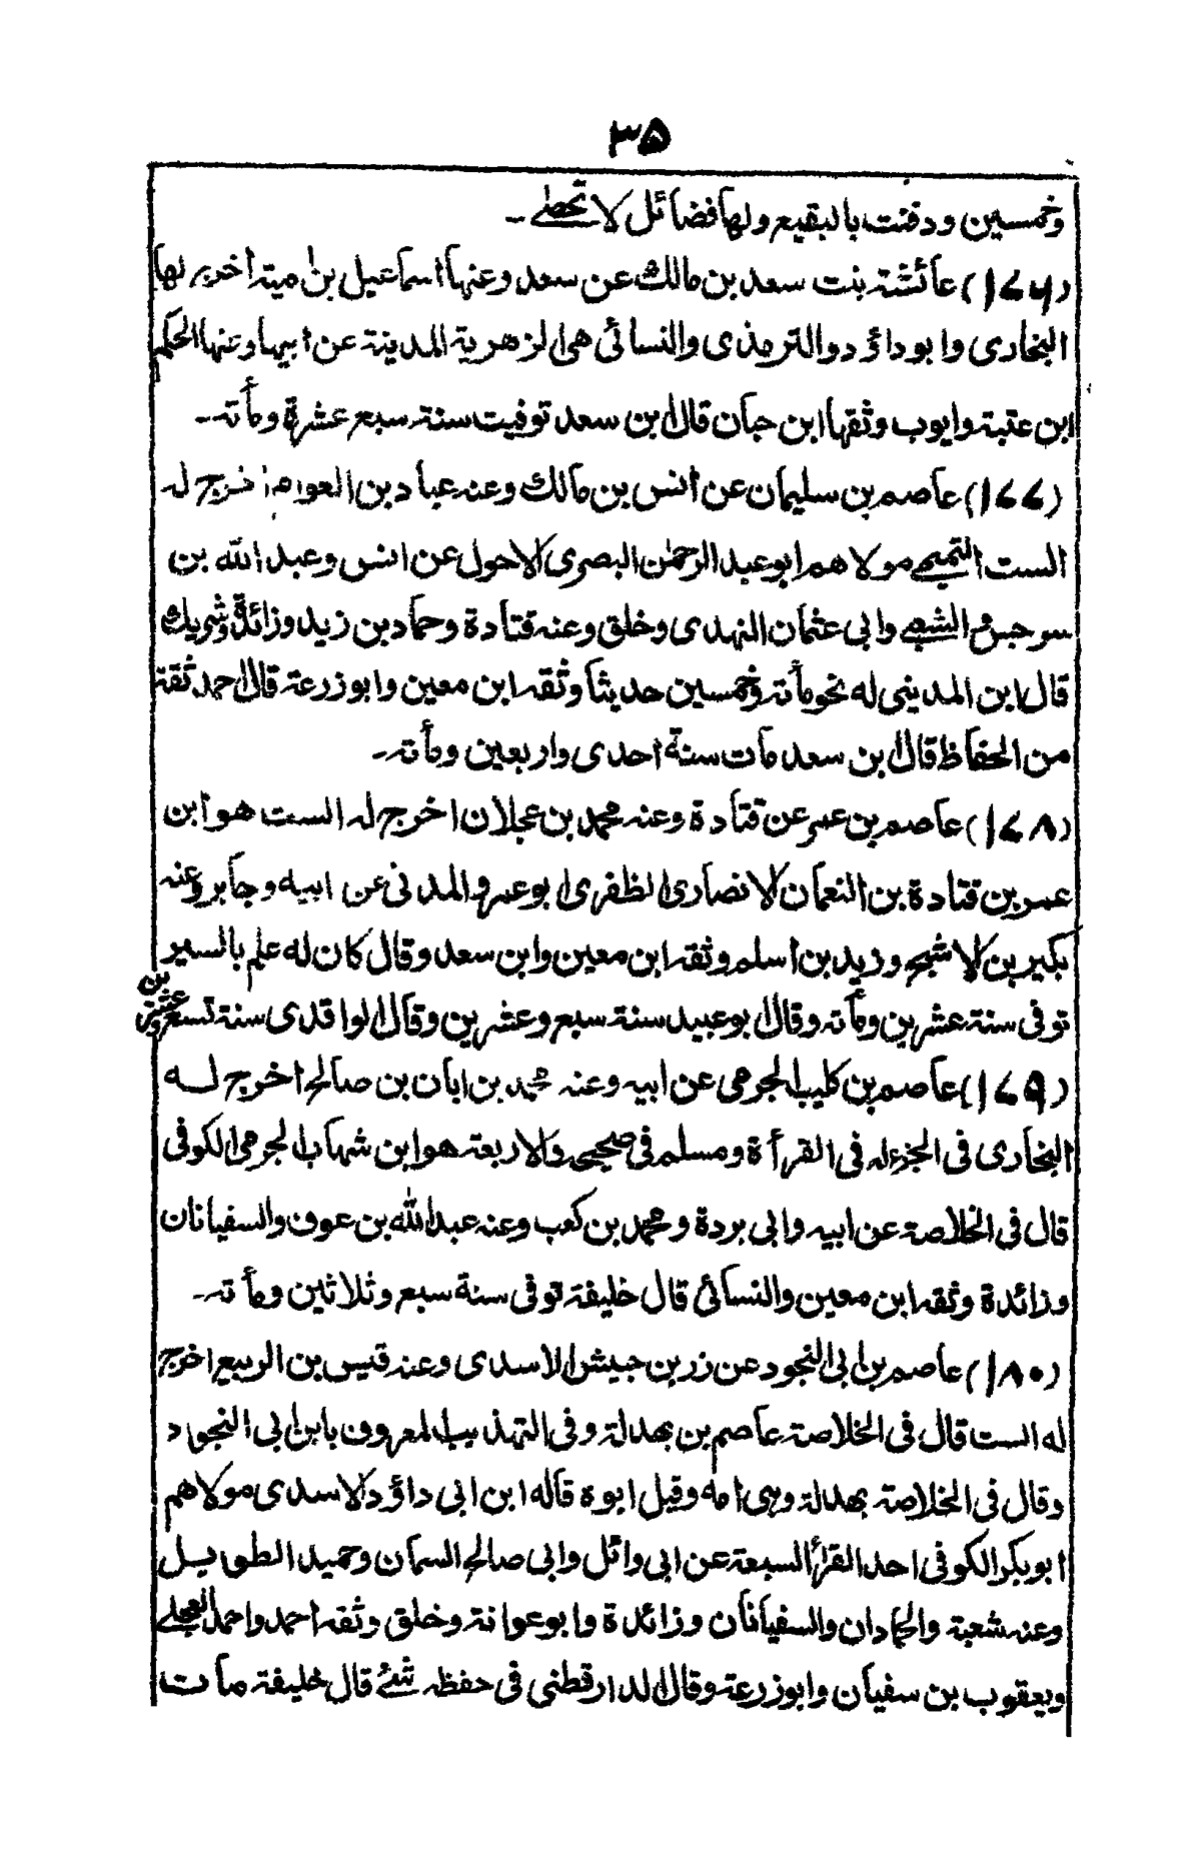 ٣۵
وخمسين ودفنت بالبقيع ولها فضائل لا تحصٰے۔
(١٧٦) عائشة بنت سعد بن مالك عن سعد وعنها اسماعيل بن امية اخرج لها
البخاری وابو داؤد والترمذی والنسائی هی الزهرية المدينة عن ابيها وعنها الحكم
ابن عتبة وايوب وثقها ابن حبان قال ابن سعد توفيت سنة سبع عشرة ومأته۔
(١٧٧) عاصم بن سليمان عن انس بن مالك وعنه عباد بن العوام اخرج له
الست التميمے مولاهم ابو عبد الرحمٰن البصری الاحول عن انس وعبد الله بن
سرجس والشعبے وابی عثمان النهدی وخلق وعنه قتادة وحماد بن زيد وزائدة وشريك
قال ابن المدينی له نحو مأته وخمسين حديثا وثقه ابن معين وابو زرعة قال احمد ثقة
من الحفاظ قال ابن سعد مات سنة احدی واربعين ومأته۔
(١٧٨) عاصم بن عمر عن قتادة وعنه محمد بن عجلان اخرج له الست هو ابن
عمر بن قتادة بن النعمان الانصاری الظفری ابو عمرو المدنی عن ابيه وجابر وعنه
بكير بن الاشجع وزيد بن اسلم وثقه ابن معين وابن سعد وقال كان له علم بالسير
توفی سنة عشرين ومأته وقال ابو عبيد سنة سبع وعشرين وقال الواقدی سنة تسع وعشرين
(١٧٩) عاصم بن كليب الجرمی عن ابيه وعنه محمد بن ابان بن صالح اخرج له
البخاری فی الجزء له فی القرأة ومسلم فی صحيحه والاربعة هو ابن شهاب الجرمی الكوفی
قال فی الخلاصة عن ابيه وابی بردة ومحمد بن كعب وعنه عبد الله بن عوف والسفيانان
وزائدة وثقه ابن معين والنسائی قال خليفة توفی سنة سبع وثلاثين ومأته۔
(١٨٠) عاصم بن ابی النجود عن زر بن حبيش الاسدی وعنه قيس بن الربيع اخرج
له الست قال فی الخلاصة عاصم بن بهدلة وفی التهذيب المعروف بابن ابی النجود
وقال فی الخلاصة بهدلة وهی امه وقيل ابوه قاله ابن ابی داؤد الاسدی مولاهم
ابو بكر الكوفی احد القرأ السبعة عن ابی وائل وابی صالح السمان وحميد الطويل
وعنه شعبة والحمادان والسفيانان وزائدة وابو عوانة وخلق وثقه احمد واحمد العجلے
ويعقوب بن سفيان وابو زرعة وقال الدارقطنی فی حفظه شئے قال خليفة مات